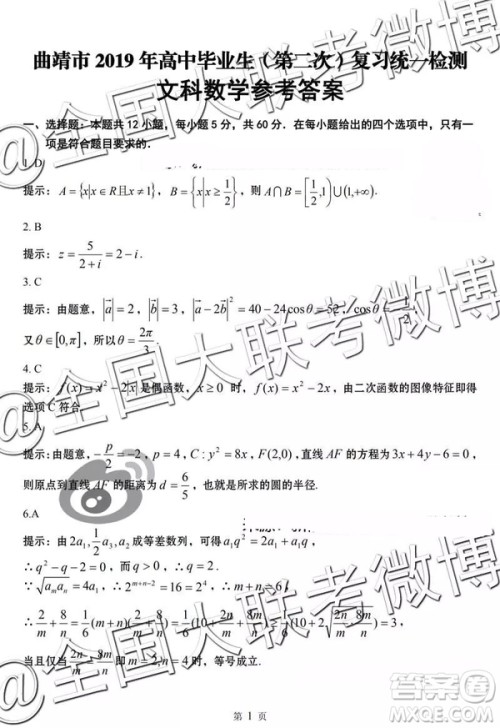 曲靖市 2019 年高中毕业生（第二次）复习统一检测
文科数学参考答案
一、选择题：本题共 12 小题，每小题 5 分，共 60 分．在每小题给出的四个选项中，只有一
项是符合题目要求的．
1. D
提示：A={x|x∈R且x≠1}，B={x|x≥1/2}，则 A∩B=[1/2,1)∪(1,+∞).
2. B
提示：z=5/(2+i)=2-i.
3. C
提示：由题意，|a⃗|=2，|b⃗|=3，|a⃗-2b⃗|²=40-24cosθ=52，cosθ=-1/2.
又θ∈[0,π]，所以θ=2π/3.
4. C
提示：f(x)=x²-2|x|是偶函数，x≥0 时，f(x)=x²-2x，由二次函数的图像特征即得
选项 C 符合.
5. A
提示：由题意，-p/2=-2，p=4，C:y²=8x，F(2,0)，直线 AF 的方程为3x+4y-6=0，
则原点到直线AF的距离为d=6/5，也就是所求的圆的半径.
6.A
提示：由2a₁,1/2a₃,a₂成等差数列，可得a₁q²=2a₁+a₁q，
∴q²-q-2=0，而q>0，∴q=2.
∵√(aₘaₙ)=4a₁，∴2^(m+n-2)=16=2⁴，∴m+n=6.
当且仅当2n/m=8m/n，即m=2,n=4时，等号成立.
第 1 页
@全国大联考微博
@全国大联考微博
@全国大联考微博
答案圈
MXQE.COM